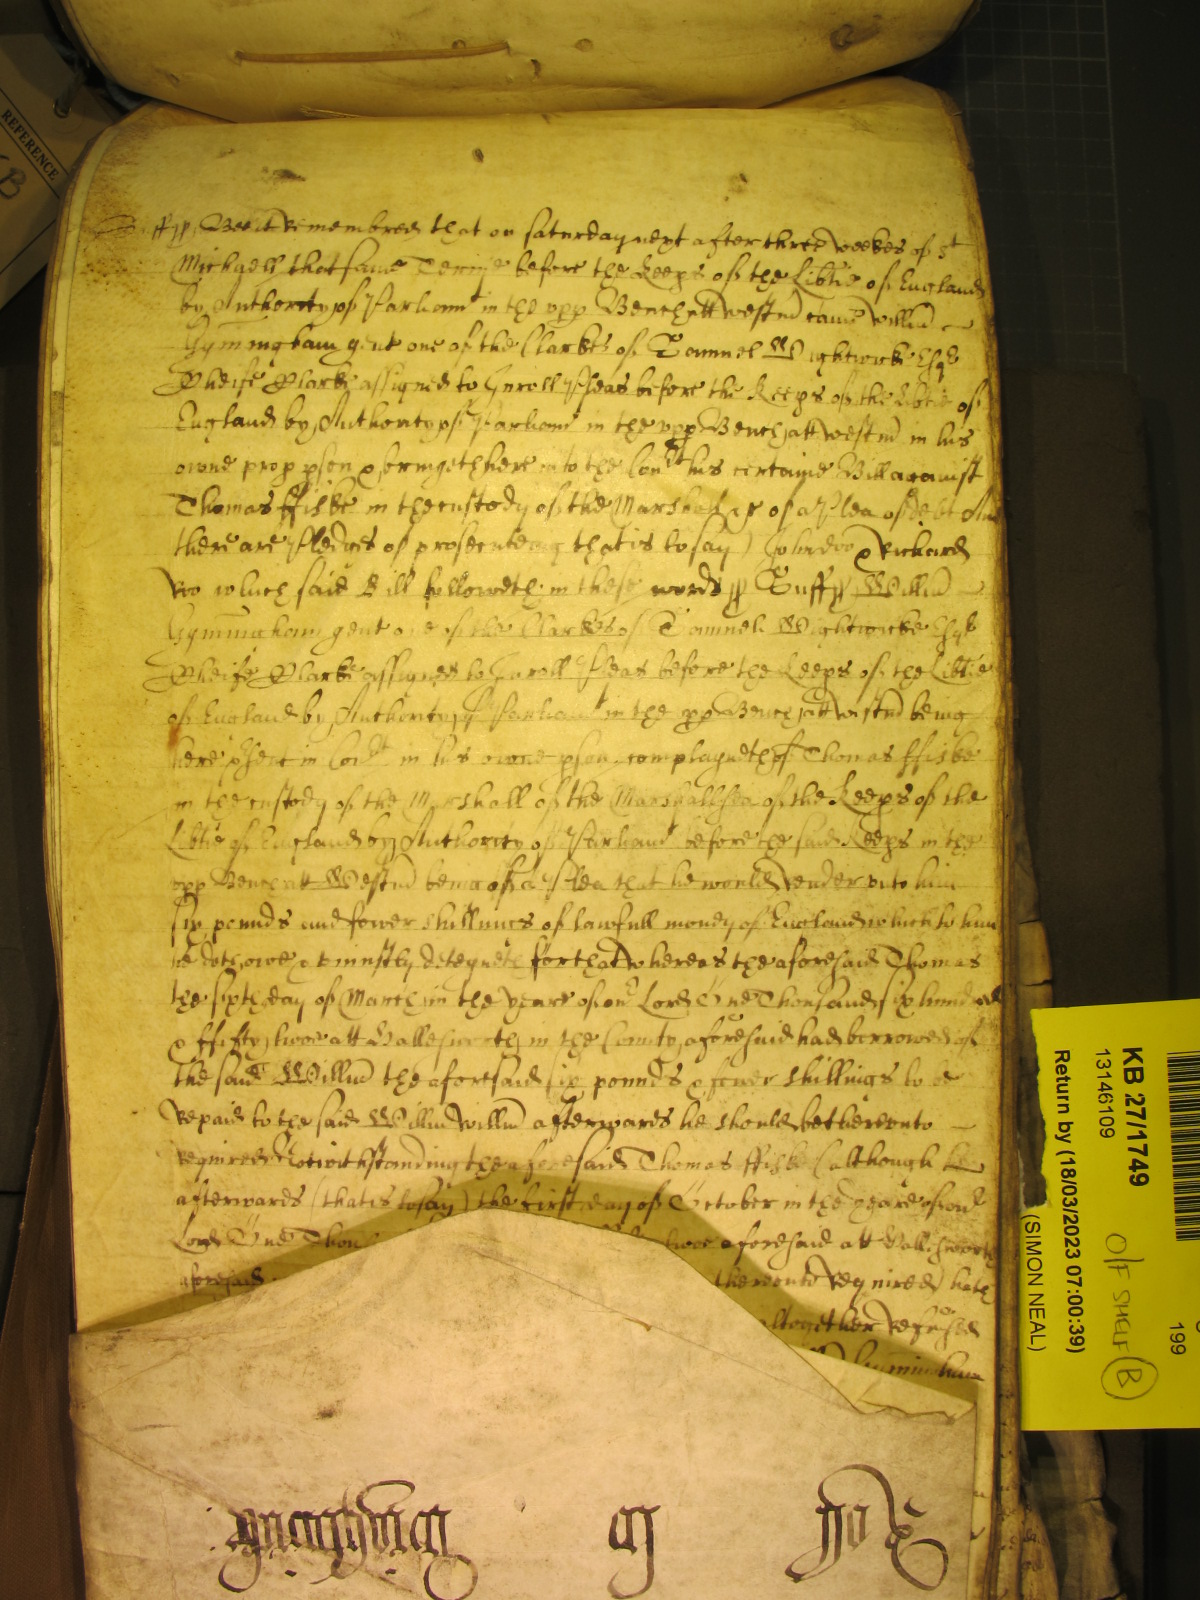 REFERENCE
B
ss Bee it remembred that on saturday next after three weekes of St
Michaell that same Terme before the Keeps of the Libtie of England
by Authority of Parliamt in the vpp Bench att Westmr came Willm
Gymmingham gent one of the Clarkes of Samuel Wightwicke Esqr
Cheife Clarke assigned to Inroll Pleas before the Keeps of the Libtie of
England by Authority of Parliamt in the vpp Bench att Westmr in his
owne prop pson & bringeth here into the Court his certaine Bill against
Thomas ffiske in the custody of the Marshall &c of a Plea of debt And
there are Pledges of prosecuteing that is to say) John doo & Richard
roo which said Bill followeth in these words ss Suff ss Willm
Gymmingham gent one of the Clarkes of Samuel Wightwicke Esqr
Cheife Clarke assigned to Inroll Pleas before the Keeps of the Libtie
of England by Authority of Parliamt in the vpp Bench att Westmr being
here psent in Court in his owne pson complayneth of Thomas ffiske
in the custody of the Marshall of the Marshallsea of the Keeps of the
Libtie of England by Authority of Parliamt before the said Keeps in the
vpp Bench att Westmr being of a Plea that he would render vnto him
six pounds and fower shillings of lawfull money of England which to him
he doth owe & uniustly deteyneth for that whereas the aforesaid Thomas
the sixth day of March in the yeare of our Lord One Thousand six hundred
& ffifty twoe att Hallesworth in the County aforesaid had borrowed of
the said Willm the aforesaid six pounds & fower shillings to be
repaid to the said Willm Willm afterwards he should be thereunto
required Notwithstanding the aforesaid Thomas ffiske (although he
afterwards (that is to say) the first day of October in the yeare of our
Lord One Thous twoe aforesaid att Hallesworth
aforesaid thereunto required) hath
altogether refused
Gymmingham
KB 27/1749
13146109
Return by (18/03/2023 07:00:39)
(SIMON NEAL)
O/F SHELF B
199